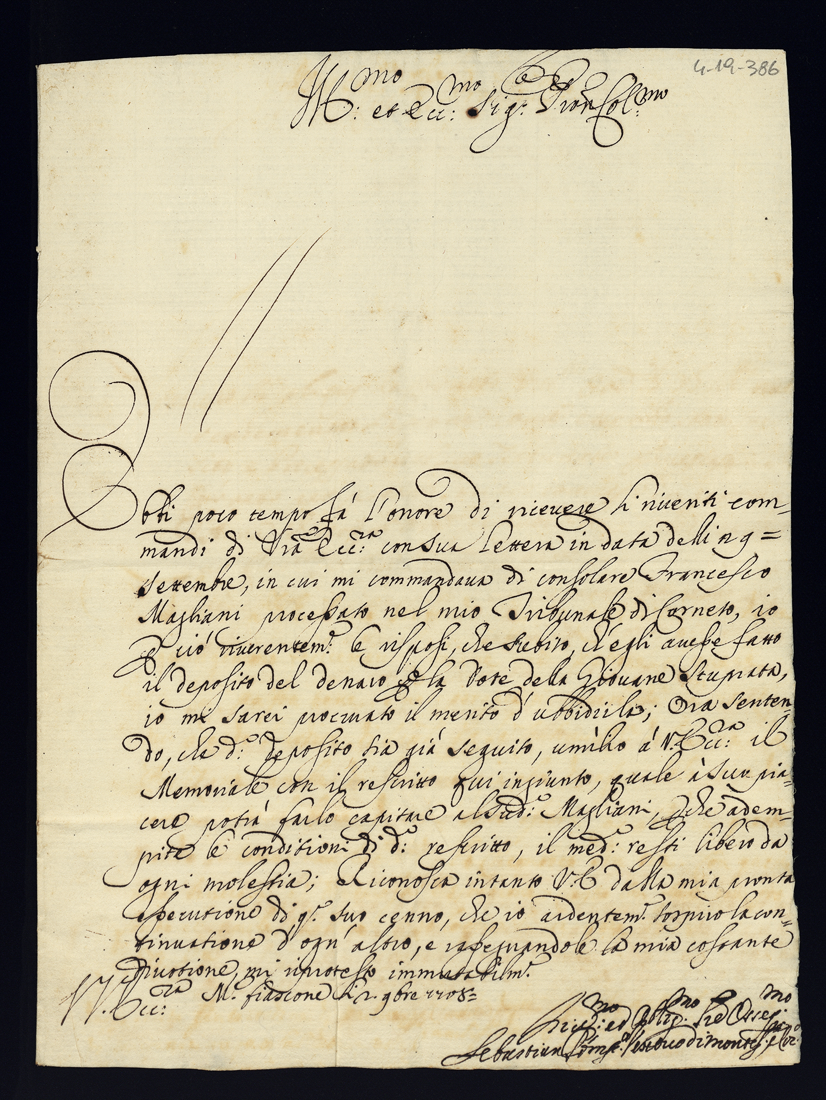 4-19-386
Ill:mo et Ecc:mo Sig:re Pron Col:mo
Ebbi poco tempo fà l'onore di ricevere li riveriti com-
mandi di V̄ra Ecc:za con sua lettera in data delli 29=
Settembre, in cui mi commandava di consolare Francesco
Magliani processato nel mio Tribunale di Corneto, io
p ciò riverentem:e le risposi, che subito, ch'egli avesse fatto
il deposito del denaro p la Dote della Giovane Stuprata,
io mi sarei procurato il merito d'ubbidirla; Ora senten-
do, che d:o deposito sia già seguito, umilio à V. Ecc:za il
Memoriale con il rescritto qui ingiunto, quale à suo pia-
cere potrà farlo capitare al sud:o Magliani, p che adem-
pite le conditioni di d:o rescritto, il med:o resti libero da
ogni molestia; Riconosca intanto V. E. dalla mia pronta
esecutione di q:o suo cenno, che io ardentem:e sospiro la con-
tinuatione d'ogn'altro, e rassegnandole la mia costante
divotione, mi riprotesto immutabilm:e
V. Ecc:za M:e fiascone li 2. 9bre 1708=
Sebastian Vescovo di Montef:e